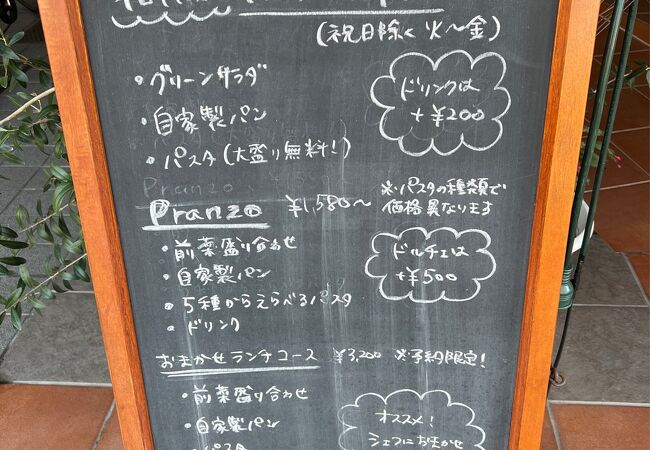 (祝日除く 火〜金)
・グリーンサラダ
・自家製パン
・パスタ(大盛り無料!)
ドリンクは
+¥200
Pranzo
Pranzo ¥1,580〜
※パスタの種類で
価格異なります
・前菜盛り合せ
・自家製パン
・5種からえらべるパスタ
・ドリンク
ドルチェは
+¥500
おまかせランチコース ¥3,200 ※予約限定!
・前菜盛り合わせ
・自家製パン
・パスタ
オススメ!
シェフにおまかせ